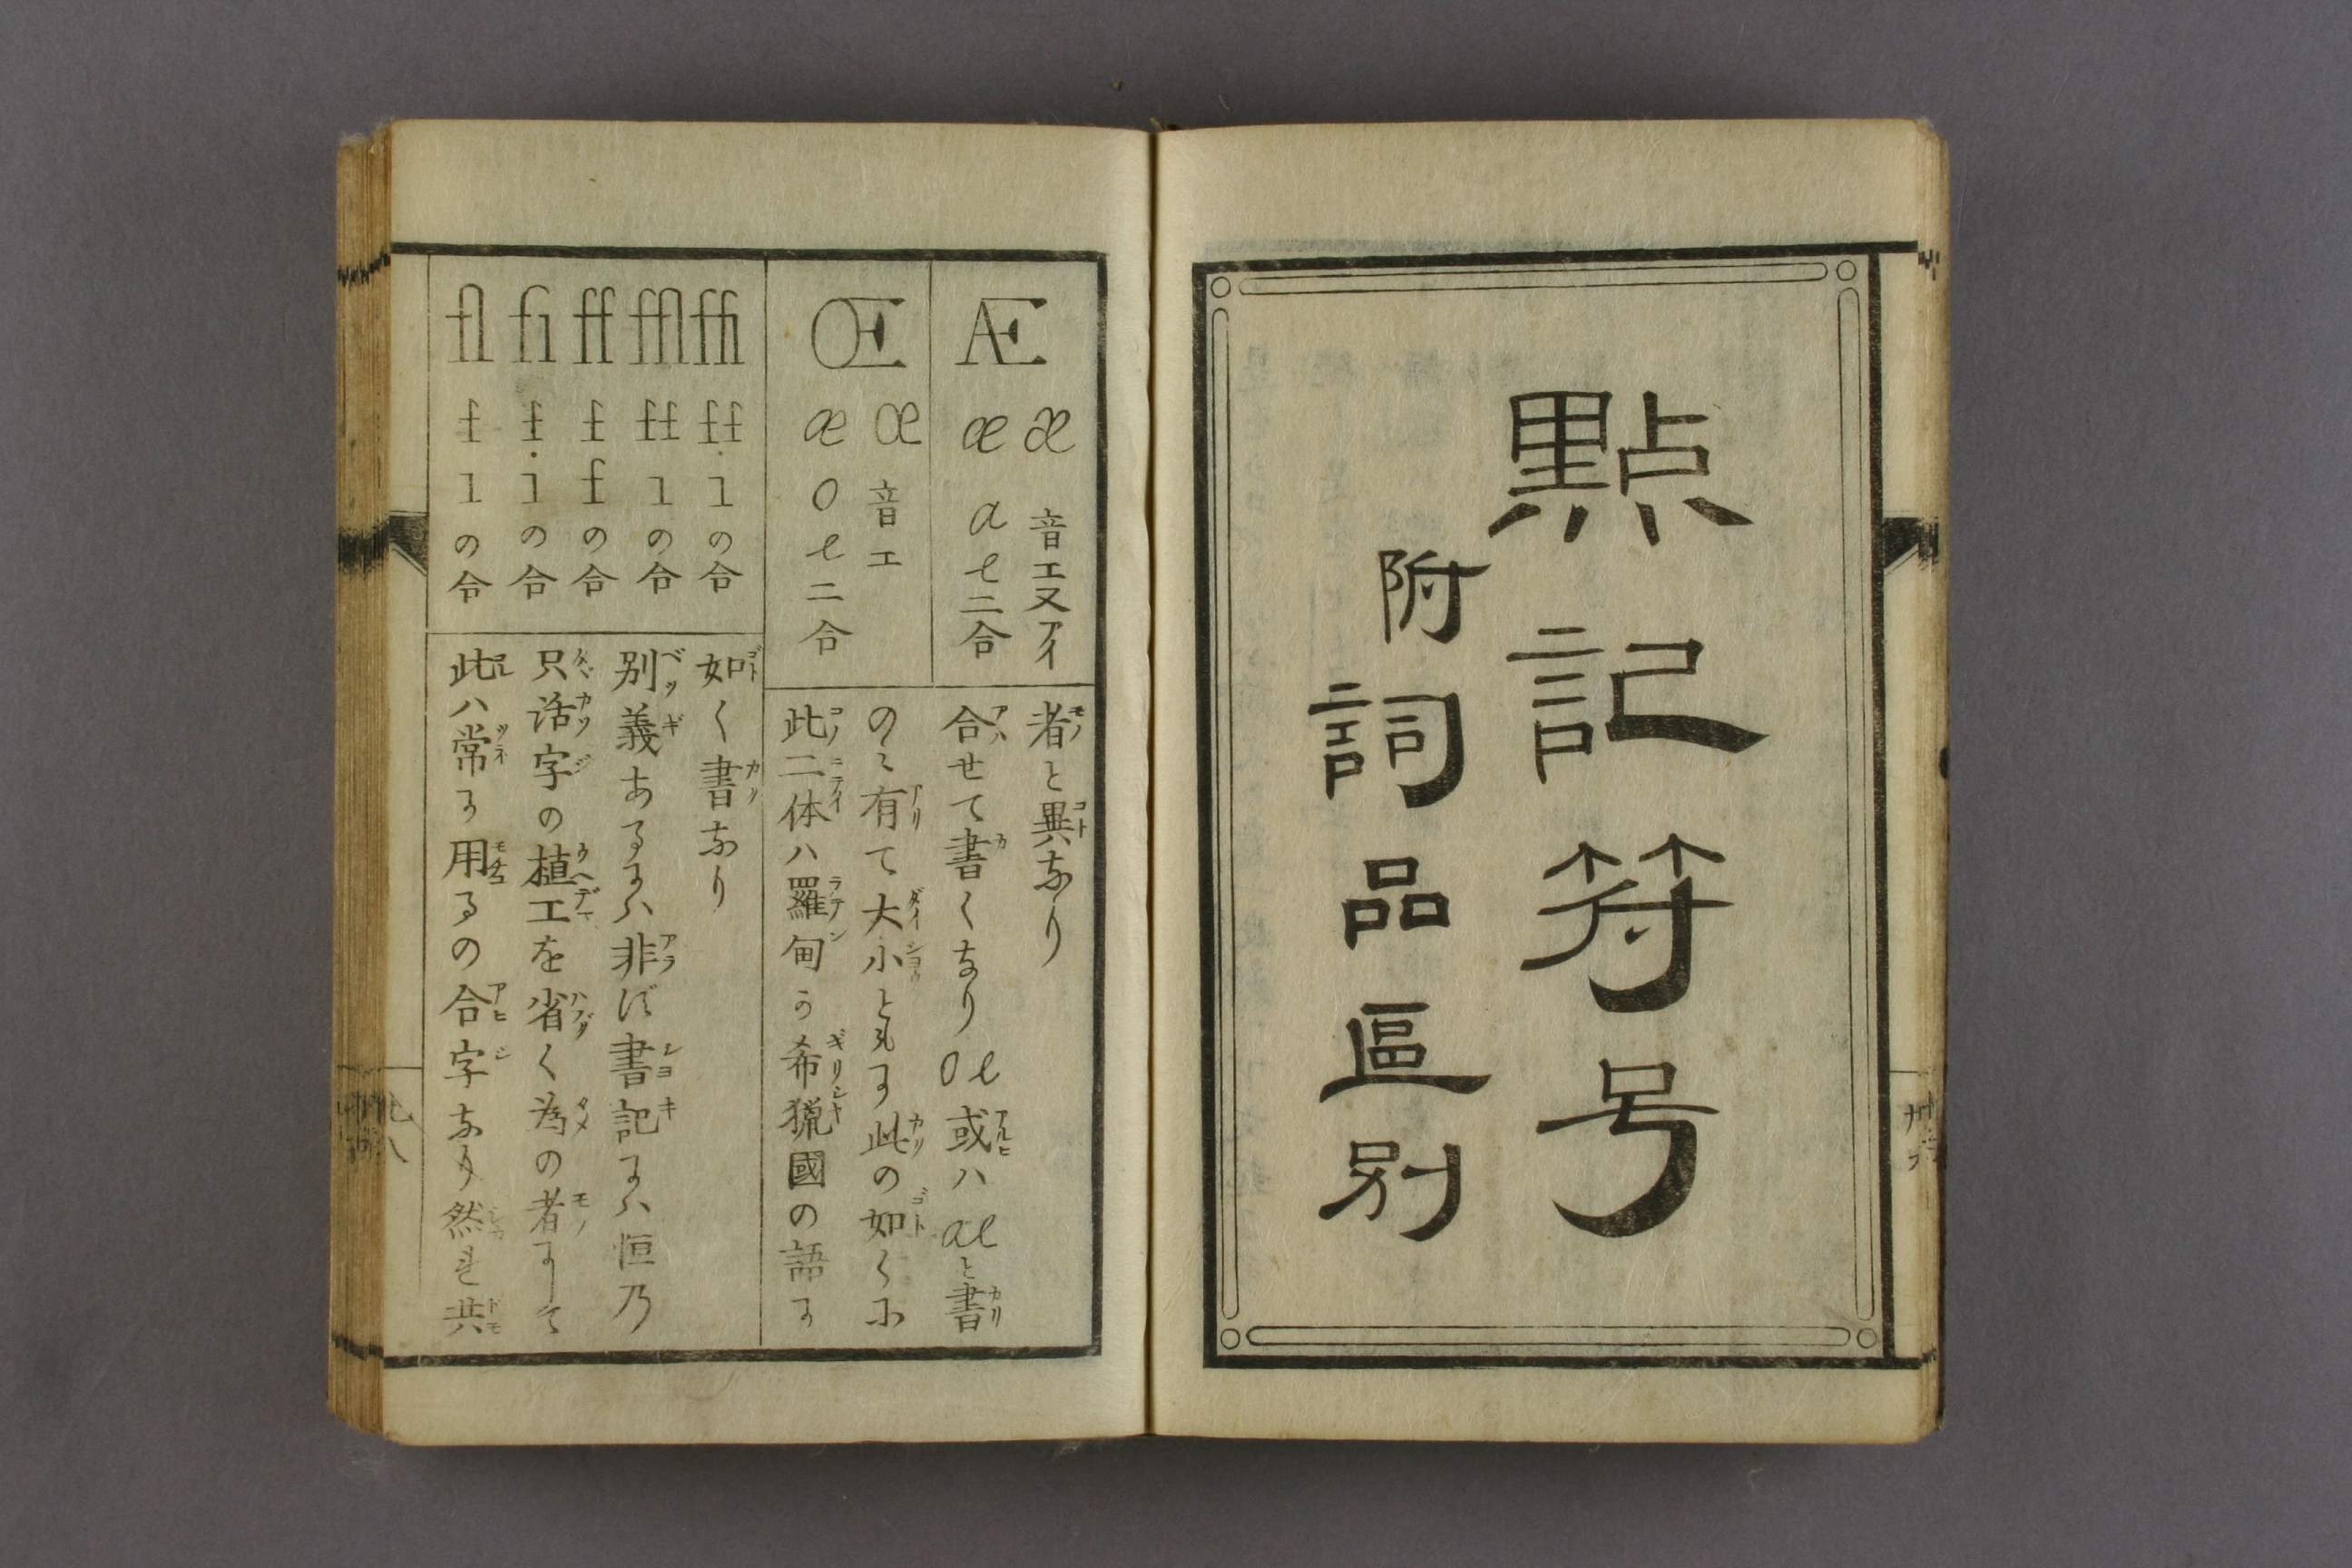 點記符号
附詞品區別
Æ
æ 音エ又アイ
æ a e 二合
Œ
œ 音エ
œ o e 二合
此二体ハ羅甸か希猟國の語に
のミ有て大小ともに此の如くふ
合せて書くなり oe 或ハ ae と書
者と異なり
ffi ff i の合
ffl ff l の合
ff f f の合
fi f i の合
fl f l の合
此ハ常に用るの合字なり然れ共
只活字の植工を省く為の者にして
別義あるにハ非ず書記にハ恒乃
如く書なり
九八